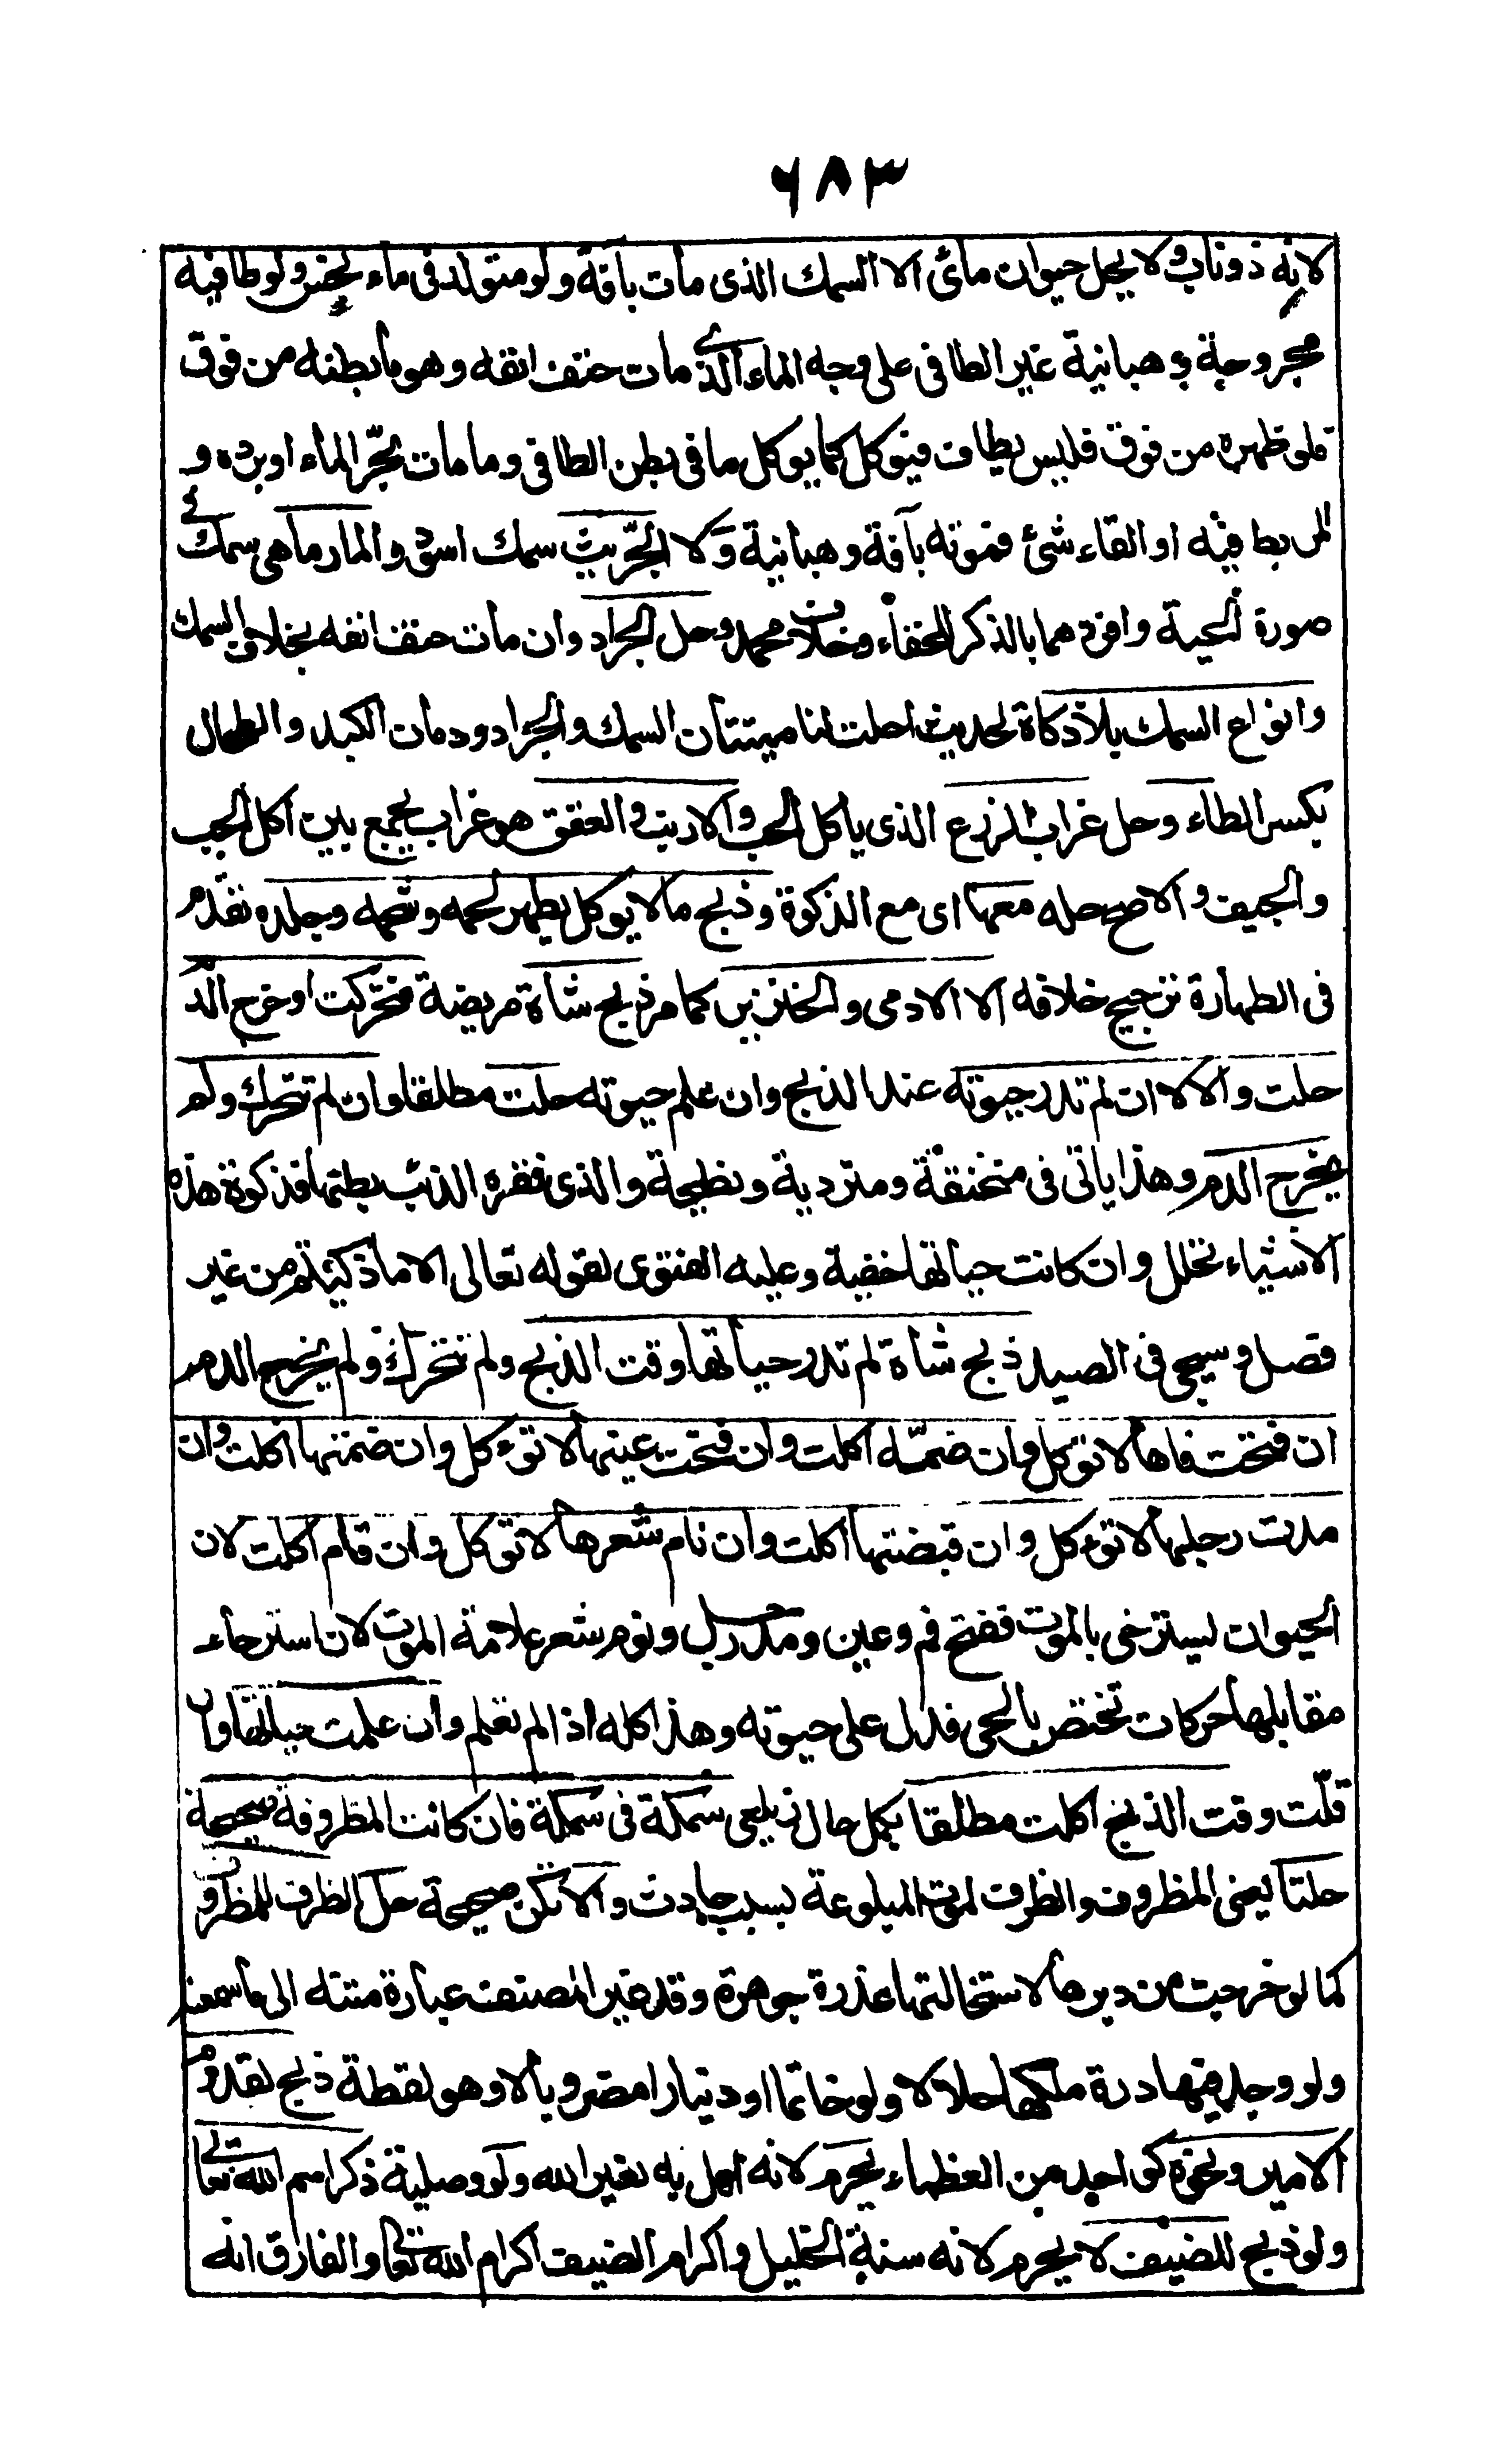 ٦٨٣
لانه ذو ناب ولا يحل حيوان مائى الا السمك الذى مات بآفة ولو متولد فى ماء نجس ولو طافية
مجروحة وهبانية غير الطافى على وجه الماء الذى مات حتف انفه وهو ما بطنه من فوق
فلو ظهره من فوق فليس بطاف فيوكل كما يوكل ما فى بطن الطافى وما مات بحرّ الماء او برده و
لربط فيه او القاء شئ فموته بآفة وهبانية ولا الجرّيث سمك اسود والمارماهى سمك فى
صورة الحية وافردهما بالذكر للخفاء وخلاف محمد وحل الجراد وان مات حتف انفه بخلاف السمك
وانواع السمك بلا ذكاة لحديث احلت لنا ميتتان السمك والجراد ودمان الكبد والطحال
بكسر الطاء وحل غراب الزرع الذى ياكل الحب والارنب والعقعق هو غراب يجمع بين اكل الحب
والجيف والاصح حله معها اى مع الذكوة وذبح ما لا يوكل يطهر لحمه وشحمه وجلده تقدم
فى الطهارة ترجيح خلافه الا الادمى والخنزير كما مر ذبح شاة مريضة فتحركت او خرج الدم
حلت والا لا ان لم تدر حيوته عند الذبح وان علم حيوته حلت مطلقا وان لم تتحرك ولم
يخرج الدم وهذا ياتى فى منخنقة ومتردية ونطيحة والذى فقره الذئب بطنها فذكوة هذه
الاشياء تحلل وان كانت حياتها خفية وعليه الفتوى لقوله تعالى الا ما ذكيتم من غير
فصل وسيجى فى الصيد ذبح شاة لم تدر حياتها وقت الذبح ولم تتحرك ولم يخرج الدم
ان فتحت فاها لا توكل وان ضمّته اكلت وان فتحت عينها لا توءكل وان ضمتها اكلت وان
مدت رجليها لا توءكل وان قبضتها اكلت وان نام شعرها لا توكل وان قام اكلت لان
الحيوان يسترخى بالموت ففتح فم وعين ومد رجل ونوم شعر علامة الموت لان استرخاء
مقابلها حركات تختص بالحى فدل على حيوته وهذا كله اذا لم تعلم وان علمت حياتها وان
قلّت وقت الذبح اكلت مطلقا بكل حال زيلعى سمكة فى سمكة فان كانت المظروفة صحيحة
حلتا يعنى المظروف والظرف لموت المبلوعة بسبب حادث والا تكن صحيحة حل الظرف لا المظروف
كما لو خرجت من دبرها لاستحالتها عذرة جوهرة وقد غير المصنف عبارة متنه الى ما سمعت
ولو وجد فيها درة ملكها حلالا ولو خاتما او دينارا مضروبا لا وهو لقطة ذبح لقدوم
الامير ونحوه كواحد من العظماء يحرم لانه اهل به لغير الله ولو وصلية ذكر اسم الله تعالى
ولو ذبح للضيف لا يحرم لانه سنة الخليل واكرام الضيف اكرام الله تعالى والفارق انه